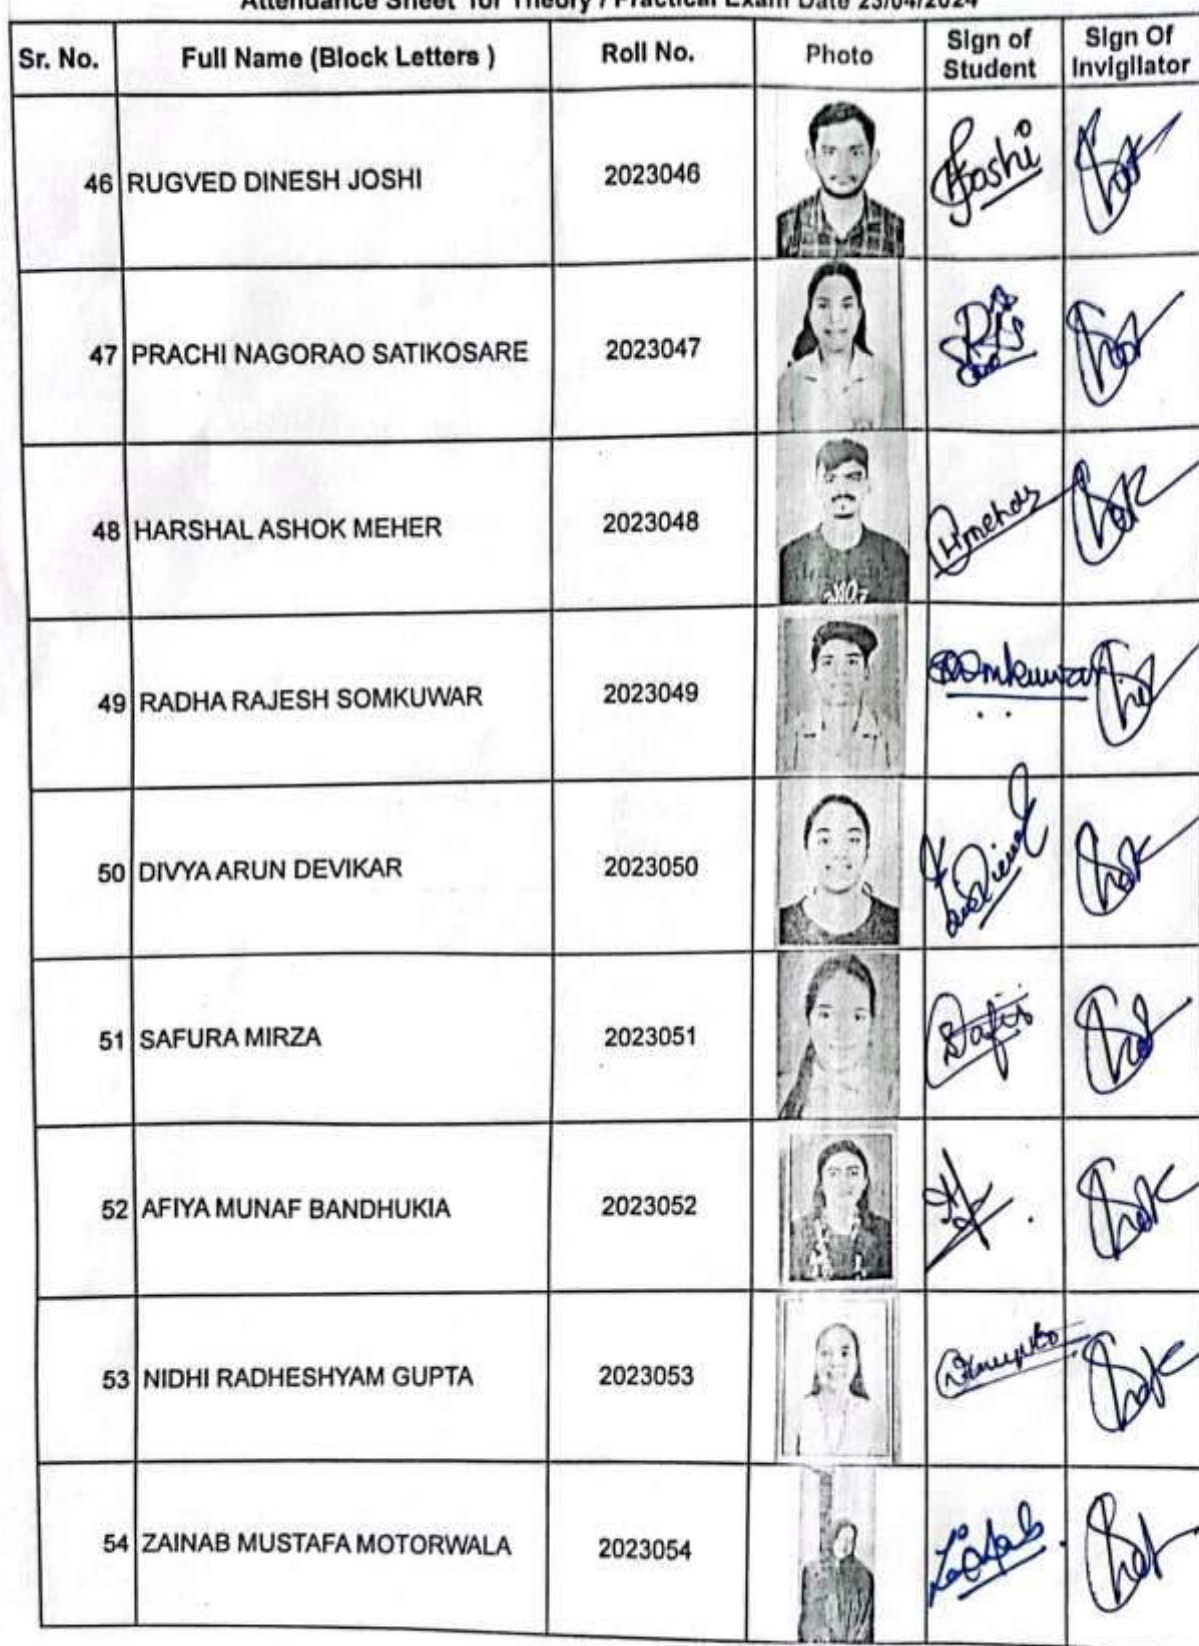 Attendance Sheet for Theory / Practical Exam Date 23/04/2024
Sr. No. Full Name (Block Letters ) Roll No. Photo Sign of Student Sign Of Invigilator
46 RUGVED DINESH JOSHI 2023046 Joshi
47 PRACHI NAGORAO SATIKOSARE 2023047
48 HARSHAL ASHOK MEHER 2023048
49 RADHA RAJESH SOMKUWAR 2023049 Somkuwar
50 DIVYA ARUN DEVIKAR 2023050
51 SAFURA MIRZA 2023051
52 AFIYA MUNAF BANDHUKIA 2023052
53 NIDHI RADHESHYAM GUPTA 2023053
54 ZAINAB MUSTAFA MOTORWALA 2023054